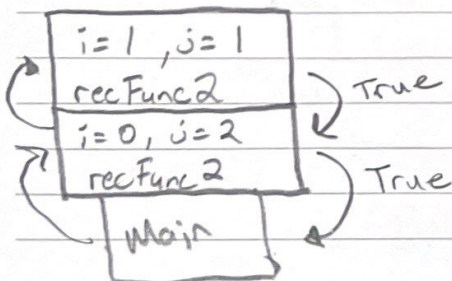 i=1, j=1
recFunc2
True
i=0, j=2
recFunc2
True
Main